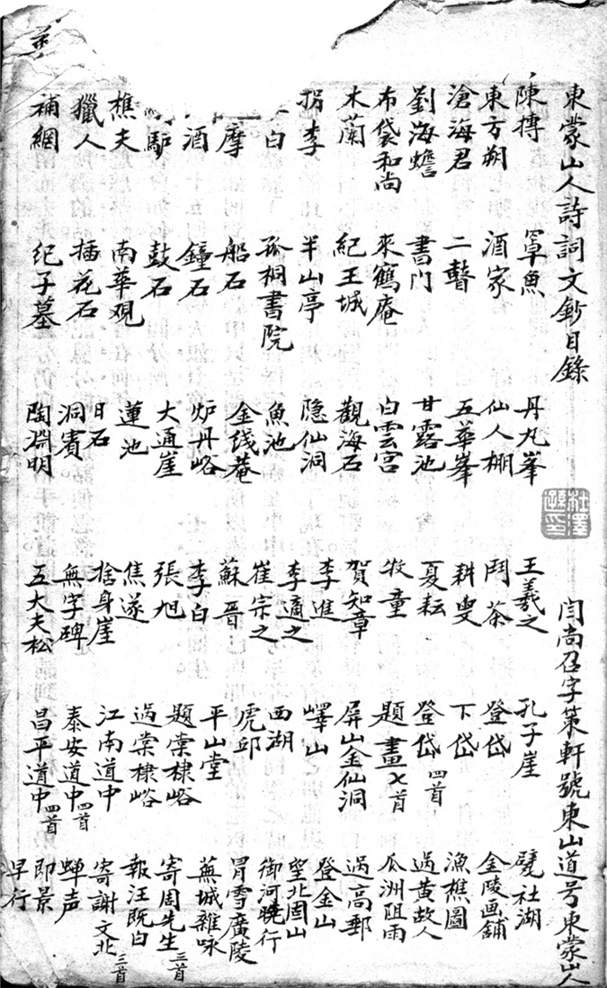 東蒙山人詩詞文鈔目錄
閆尚召字策軒號東山道号東蒙山人
杜澤遜印
陳摶
東方朔
滄海君
劉海蟾
布袋和尚
木蘭
拐李
白
摩
酒
驴
樵夫
獵人
補網
罩魚
酒家
二瞽
書门
來鶴庵
紀王城
半山亭
孤桐書院
船石
鐘石
鼓石
南華观
插花石
纪子墓
丹丸峯
仙人棚
五華峯
甘露池
白雲宮
觀海石
隐仙洞
魚池
金线菴
炉丹峪
大通崖
蓮池
日石
洞賓
陶淵明
王羲之
鬥茶
耕叟
夏耘
牧童
賀知章
李進
李適之
崔宗之
蘇晋
李白
張旭
焦遂
捨身崖
無字碑
五大夫松
孔子崖
登岱
下岱
登岱四首
題畫七首
屏山金仙洞
嶧山
西湖
虎邱
平山堂
題棠棣峪
過棠棣峪
江南道中
泰安道中四首
昌平道中四首
甓社湖
金陵画舖
漁樵圖
過黄故人
瓜洲阻雨
過高郵
登金山
望北固山
御河曉行
冒雪廣陵
蕪城雜咏
寄周先生三首
報汪既白
寄謝文北三首
蝉声
即景
早行